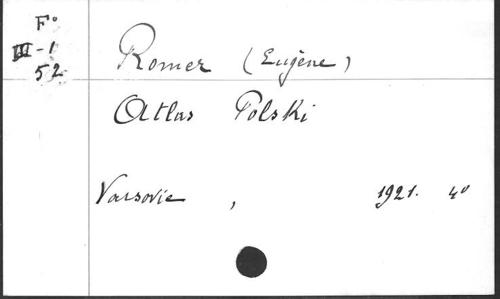 F°
III-1
52
Romer (Eugène)
Atlas Polski
Varsovie, 1921. 4°